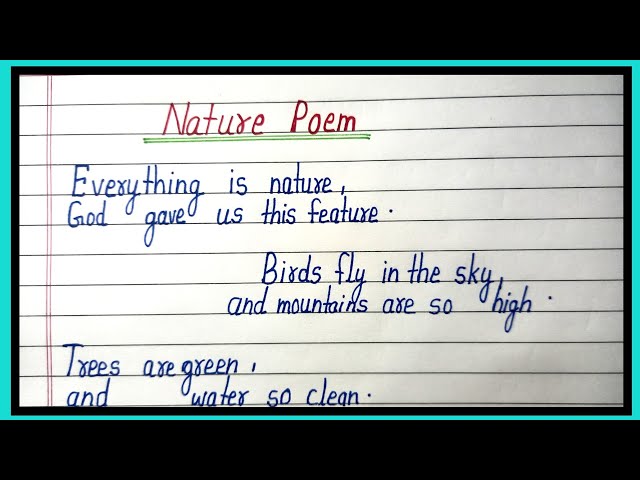 Nature Poem
Everything is nature,
God gave us this feature.
Birds fly in the sky,
and mountains are so high.
Trees are green,
and water so clean.